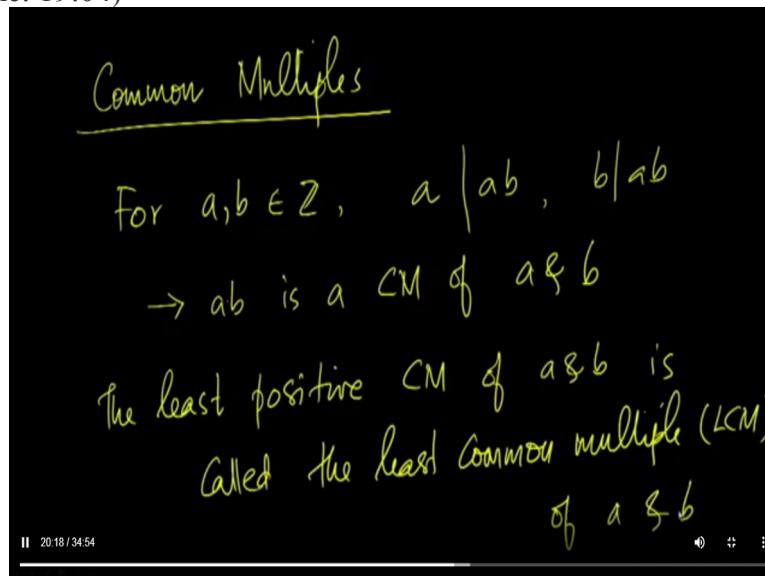 Common Multiples
For a,b ∈ Z, a | ab, b | ab
→ ab is a CM of a & b
The least positive CM of a & b is
Called the least common multiple (LCM)
of a & b
20:18 / 34:54